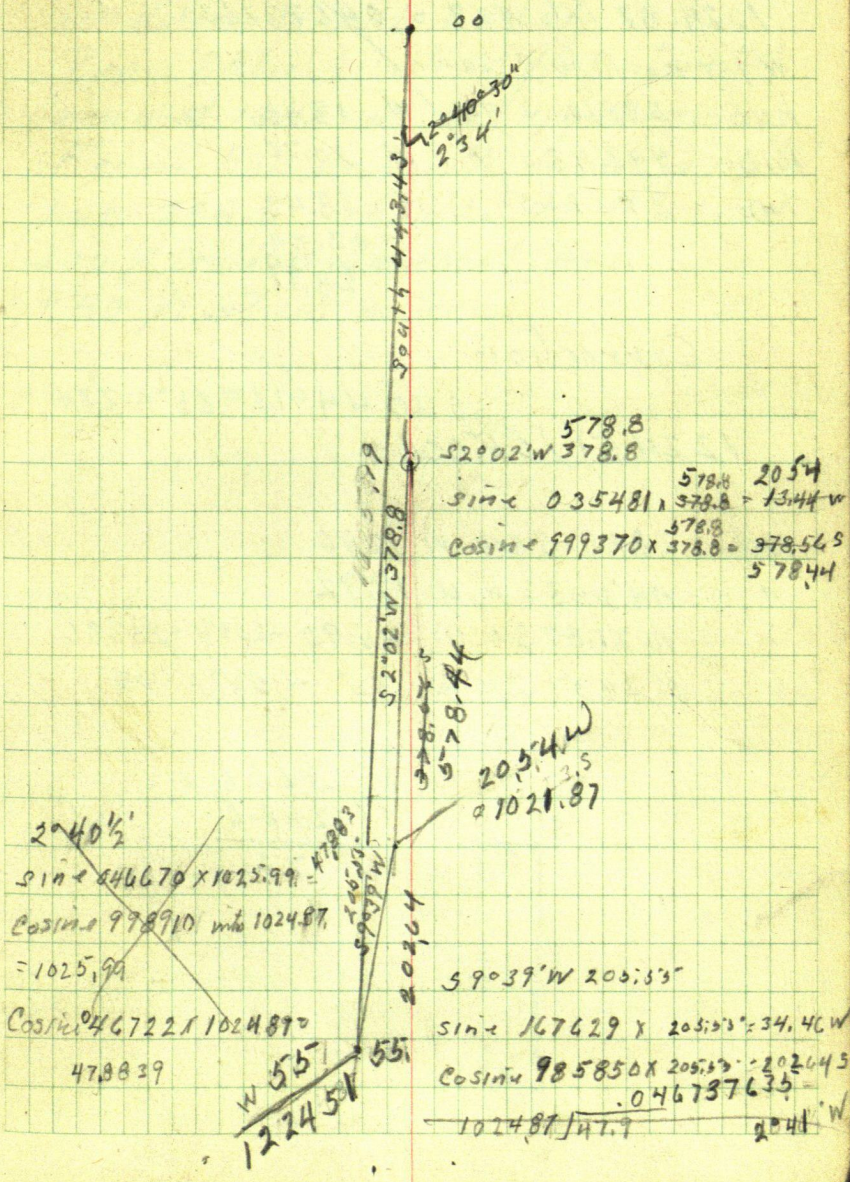 00
2°40'30"
2°34'
South 443.43
578.8
S2°02'W 378.8
578.8 2054
sine 035481 x 378.8 = 13.44 W
578.8
Cosine 999370 x 378.8 = 378.56 S
578.44
1025.99
S2°02'W 378.8
578.44
20.54 W
1021.87
2°40½'
sine 046670 x 1025.99 =
47.883
Cosine 998910 into 1024.87
= 1025.99
Cosine 046722 x 102489 =
478839
S9°39'W
202.64
S9°39'W 205.55
sine 167629 x 205.55 = 34.46 W
Cosine 985850 x 205.55 = 202.64 S
.046737635
1024.87 ) 47.9 2°41' W
55.
W 55
122451